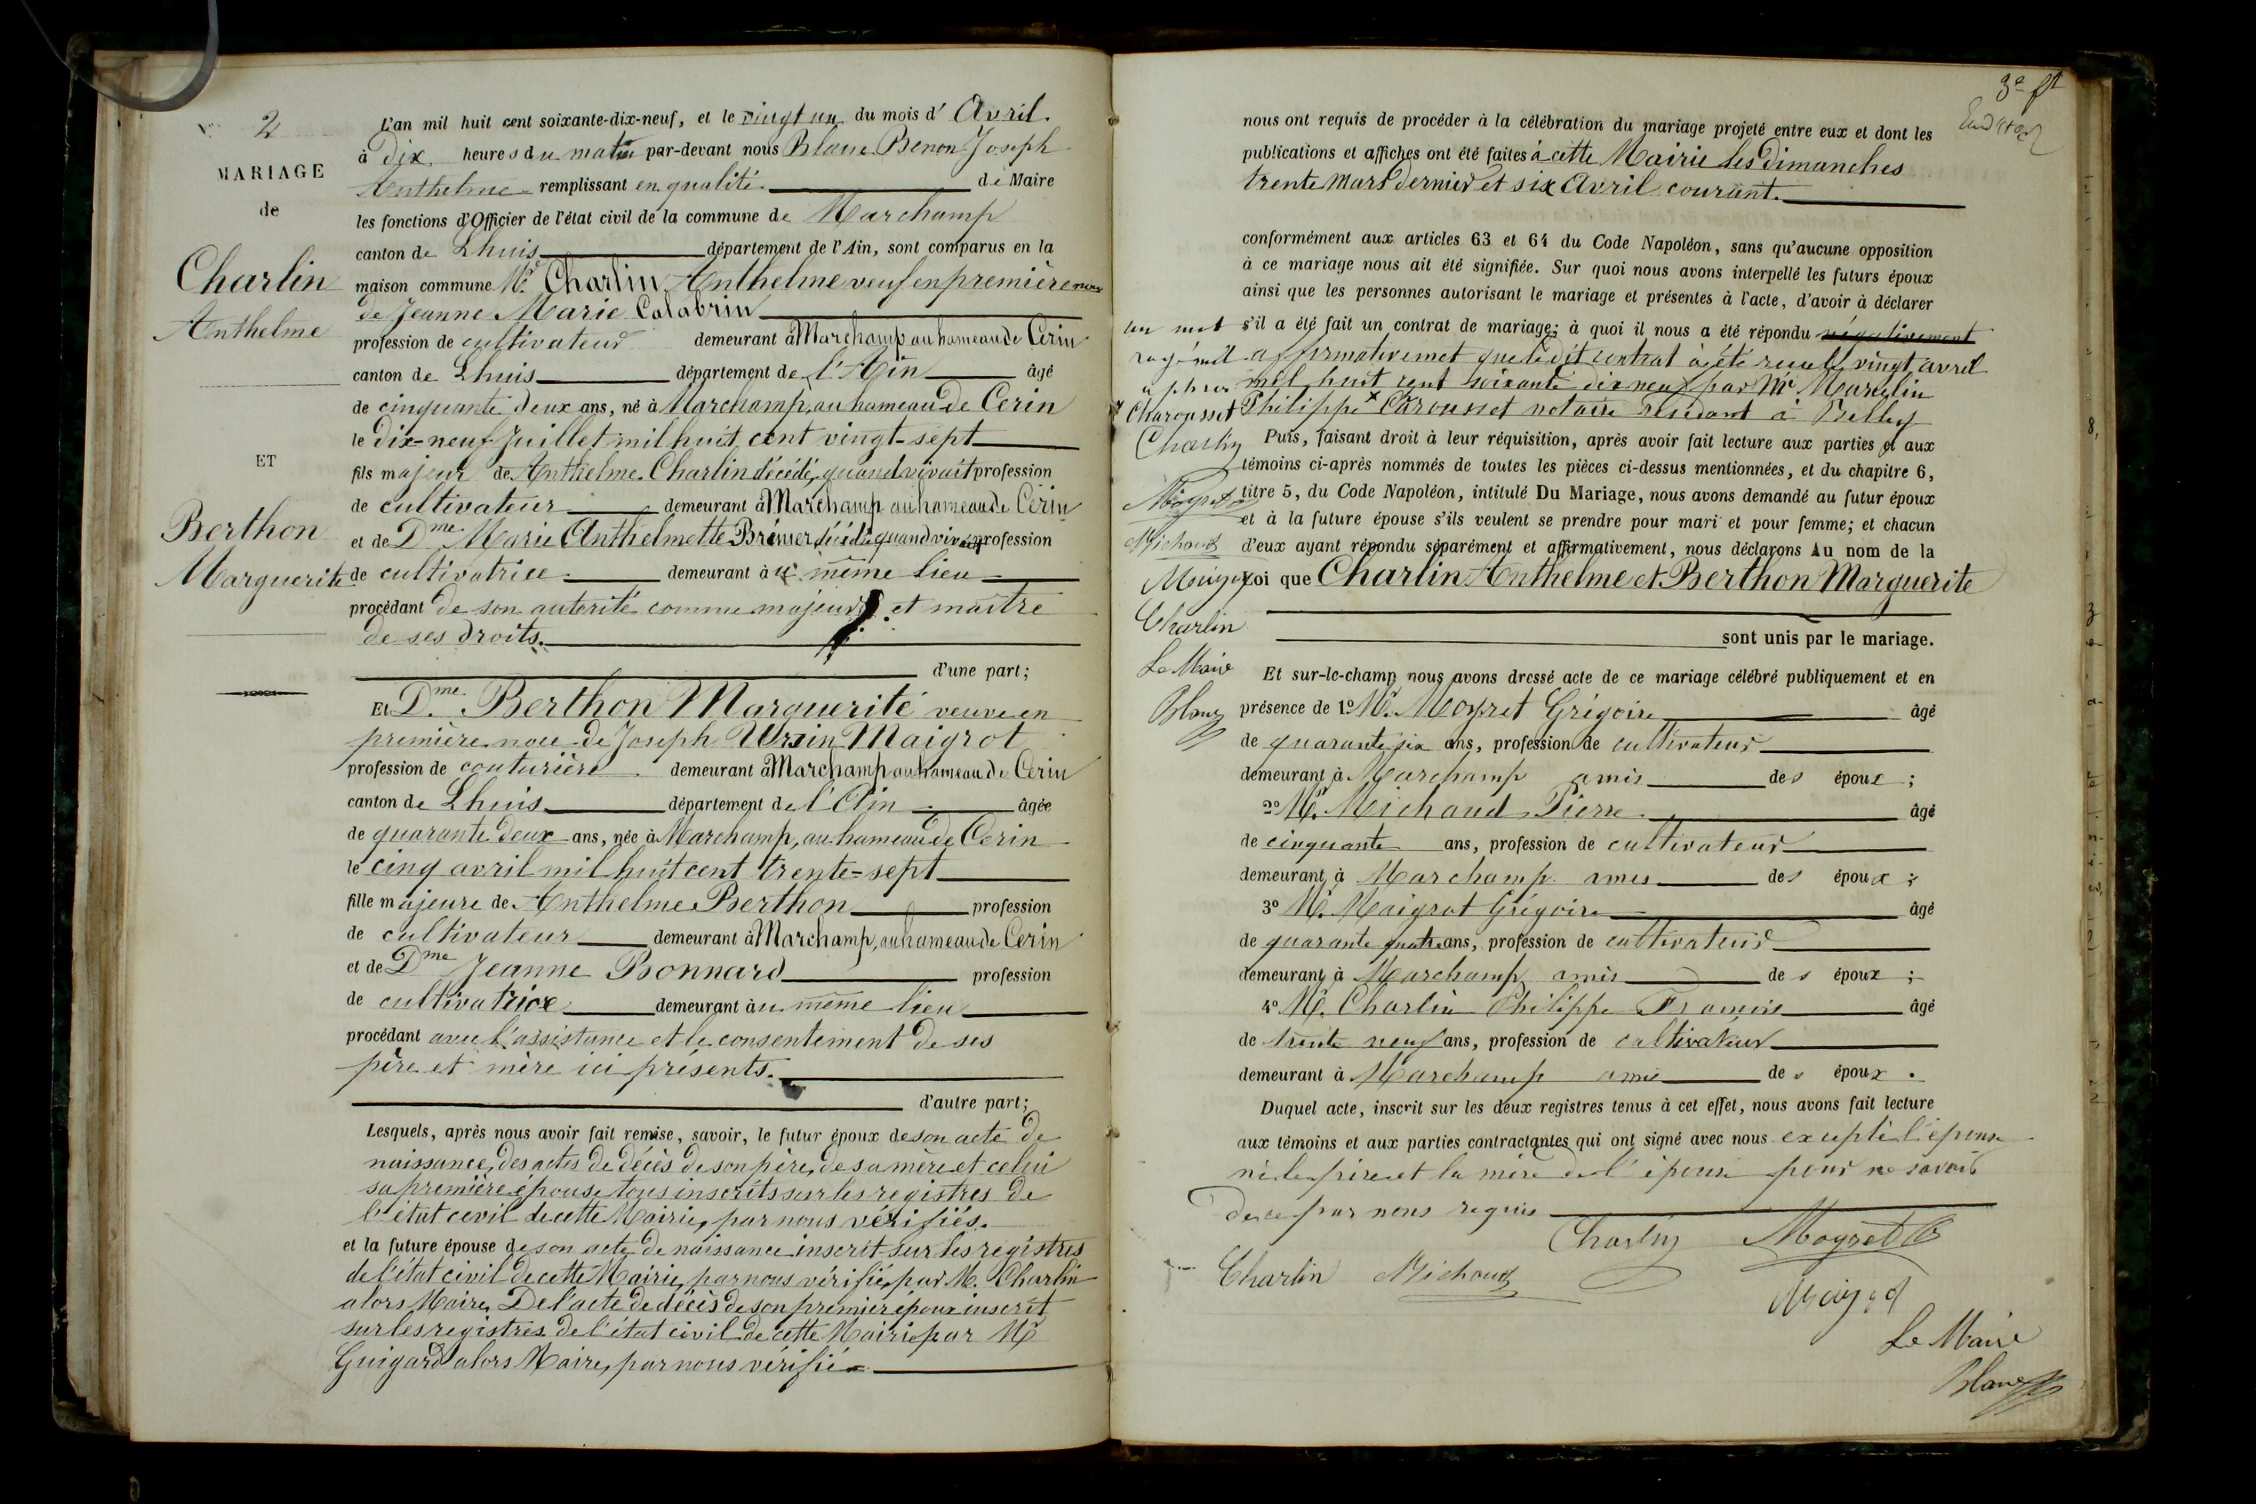 N° 2
MARIAGE
de
Charlin
Anthelme
ET
Berthon
Marguerite
L'an mil huit cent soixante-dix-neuf, et le vingt un du mois d' Avril.
à Dix heures du matin par-devant nous Blanc Benon Joseph
Anthelme remplissant en qualité de Maire
les fonctions d'Officier de l'état civil de la commune de Marchamp
canton de Lhuis département de l'Ain, sont comparus en la
maison commune Mr. Charlin Anthelme veuf en première noce
de Jeanne Marie Calabrin
profession de cultivateur demeurant à Marchamp au hameau de Cerin
canton de Lhuis département de l'Ain âgé
de cinquante deux ans, né à Marchamp, au hameau de Cerin
le Dix-neuf Juillet mil huit cent vingt-sept
fils majeur de Anthelme Charlin décédé, quand vivait profession
de cultivateur demeurant à Marchamp au hameau de Cerin
et de Dme Marie Anthelmette Brénier décédée quand vivait profession
de cultivatrice demeurant à u même lieu
procédant de son autorité comme majeur et maître
de ses droits.
d'une part;
Et Dme. Berthon Marguerite veuve en
première noce de Joseph Ursin Maigrot
profession de couturière demeurant à Marchamp au hameau de Cerin
canton de Lhuis département de l'Ain âgée
de quarante deux ans, née à Marchamp, au hameau de Cerin
le cinq avril mil huit cent trente-sept
fille majeure de Anthelme Berthon profession
de cultivateur demeurant à Marchamp, au hameau de Cerin
et de Dme Jeanne Bonnard profession
de cultivatrice demeurant àu même lieu
procédant avec l'assistance et le consentement de ses
père et mère ici présents.
d'autre part;
Lesquels, après nous avoir fait remise, savoir, le futur époux de son acte de
naissance, des actes de décès de son père, de sa mère et celui
sa première épouse tous inscrits sur les registres de
l'état civil de cette Mairie, par nous vérifiés.
et la future épouse de son acte de naissance inscrit sur les registres
de l'état civil de cette Mairie, par nous vérifié, par M. Charlin
alors Maire, De l'acte de décès de son premier époux inscrit
sur les registres de l'état civil de cette Mairie par Mr
Guigard alors Maire, par nous vérifié
nous ont requis de procéder à la célébration du mariage projeté entre eux et dont les
publications et affiches ont été faites à cette Mairie les Dimanches
trente Mars dernier et six Avril courant.
conformément aux articles 63 et 64 du Code Napoléon, sans qu'aucune opposition
à ce mariage nous ait été signifiée. Sur quoi nous avons interpellé les futurs époux
ainsi que les personnes autorisant le mariage et présentes à l'acte, d'avoir à déclarer
s'il a été fait un contrat de mariage; à quoi il nous a été répondu négativement
affirmativemet que le dit contrat à été reçu le vingt avril
mil huit cent soixante dix neuf par Me Marcelin
Philippe x Carousset notaire résidant à Belley
un mot
rayé nul
x Charousset
Charlin
Moyret
Michoud
Maigrot
Charlin
Le Maire
Blanc
Puis, faisant droit à leur réquisition, après avoir fait lecture aux parties et aux
témoins ci-après nommés de toutes les pièces ci-dessus mentionnées, et du chapitre 6,
titre 5, du Code Napoléon, intitulé Du Mariage, nous avons demandé au futur époux
et à la future épouse s'ils veulent se prendre pour mari et pour femme; et chacun
d'eux ayant répondu séparément et affirmativement, nous déclarons Au nom de la
loi que Charlin Anthelme et Berthon Marguerite
sont unis par le mariage.
Et sur-le-champ nous avons dressé acte de ce mariage célébré publiquement et en
présence de 1o Mr. Moyret Grégoire âgé
de quarante six ans, profession de cultivateur
demeurant à Marchamp amis des époux ;
2o Mr. Michaud Pierre âgé
de cinquante ans, profession de cultivateur
demeurant à Marchamp amis des époux ;
3o M. Maigrot Grégoire âgé
de quarante quatre ans, profession de cultivateur
demeurant à Marchamp amis des époux ;
4o M. Charlin Philippe François âgé
de trente neuf ans, profession de cultivateur
demeurant à Marchamp amis des époux .
Duquel acte, inscrit sur les deux registres tenus à cet effet, nous avons fait lecture
aux témoins et aux parties contractantes qui ont signé avec nous excepté l'épouse
ni le père et la mère de l'épouse pour ne savoir
de ce par nous requis
Charlin Moyret G
Charlin Michoud
Maigrot
Le Maire
Blanc